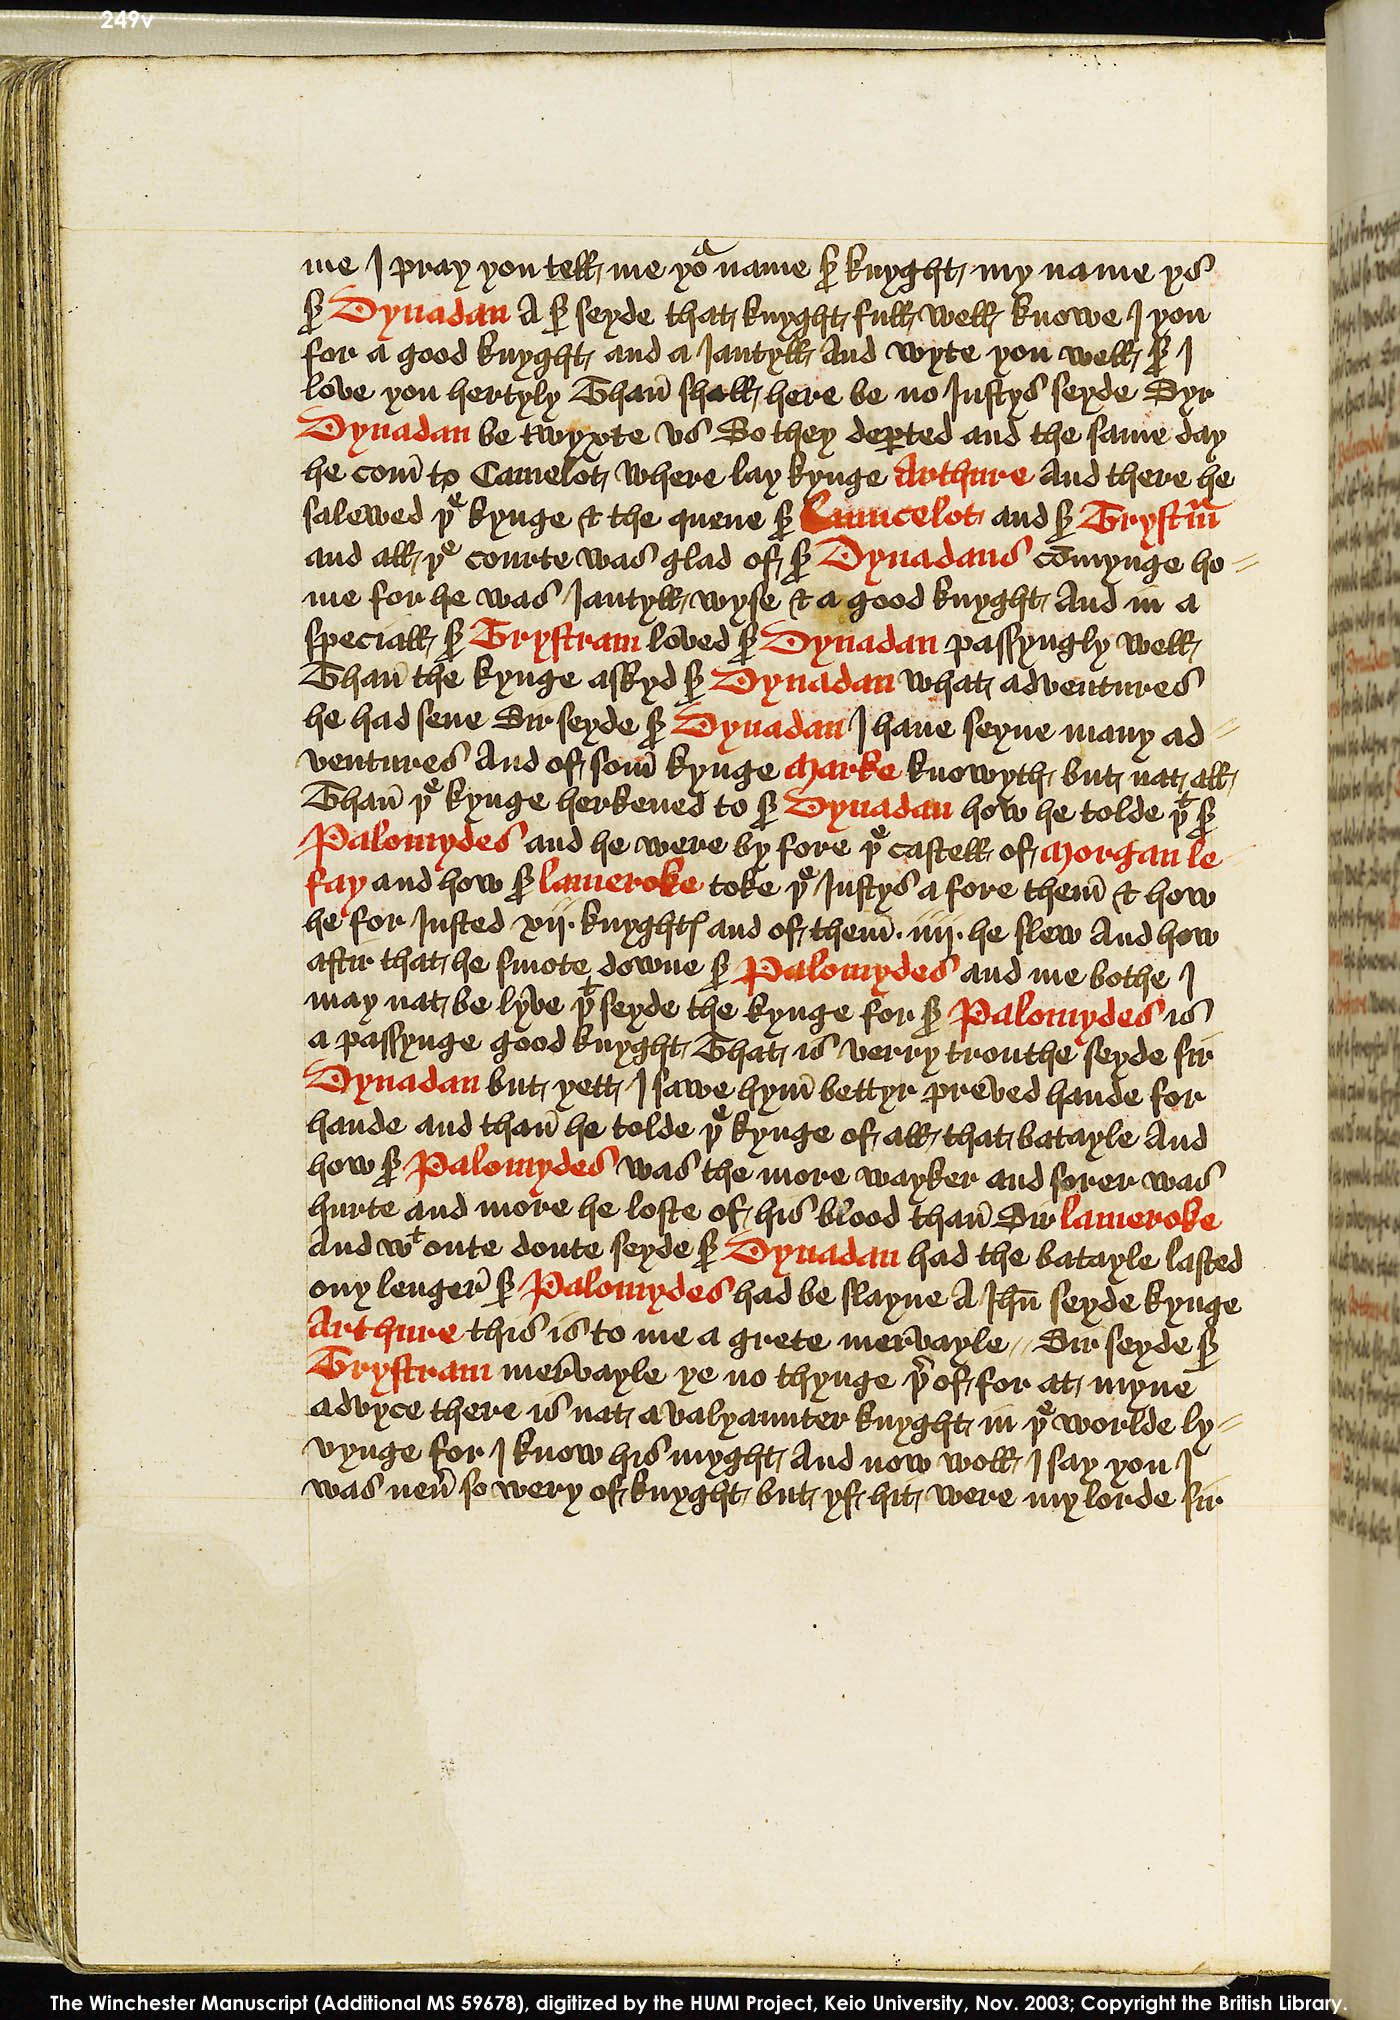 249v
me I pray you tell me yoͬ name sꝭ knyght my name ys
sꝭ Dynadan A sꝭ seyde that knyght full well knowe I you
for a good knyght and a Jantyll And wyte you well sꝭ I
love you hertyly Than̄ shall here be no Justys seyde Syr
Dynadan be twyxte vs So they deꝑted and the same day
he com̄ to Camelot where lay kynge Arthure And there he
salewed þͤ kynge & the quene sꝭ Launcelot and sꝭ Trystrᵃm
and all þͤ courte was glad of sꝭ Dynadans comynge ho=
me for he was Jantyll wyse & a good knyght And in a
speciall sꝭ Trystram loved sꝭ Dynadan passyngly well
Than̄ the kynge askyd sꝭ Dynadan what adventures
he had sene Sir seyde sꝭ Dynadan I haue seyne many ad=
ventures And of som̄ kynge Marke knowyth but nat all
Than̄ þͤ kynge herkened to sꝭ Dynadan how he tolde þͭ sꝭ
Palomydes and he were by fore þͤ castell of Morgan le
fay and how sꝭ lameroke toke þͤ Justys a fore them̄ & how
he for Justed xij. knyghtꝭ and of them̄. iiij. he slew And how
aftir that he smote downe sꝭ Palomydes and me bothe I
may nat be lyve þͭ seyde the kynge for sꝭ Palomydes is
a passynge good knyght That is verry trouthe seyde sir
Dynadan but yett I sawe hym̄ bettyr preved hande for
hande and than̄ he tolde þͤ kynge of all that batayle And
how sꝭ Palomydes was the more wayker and sorer was
hurte and more he loste of his blood than̄ Sir lameroke
And wͭ oute doute seyde sꝭ Dynadan had the batayle lasted
ony lenger̄ sꝭ Palomydes had be slayne A Jhū seyde kynge
Arthure this is to me a grete mervayle // Sir seyde sꝭ
Trystram mervayle ye no thynge þ̾of for at myne
advyce there is nat a valyaunter knyght in þͤ worlde ly=
vynge for I know his myght And now woll I say you I
was neū so wery of knyght but yf hit were my lorde sir
The Winchester Manuscript (Additional MS 59678), digitized by the HUMI Project, Keio University, Nov. 2003; Copyright the British Library.